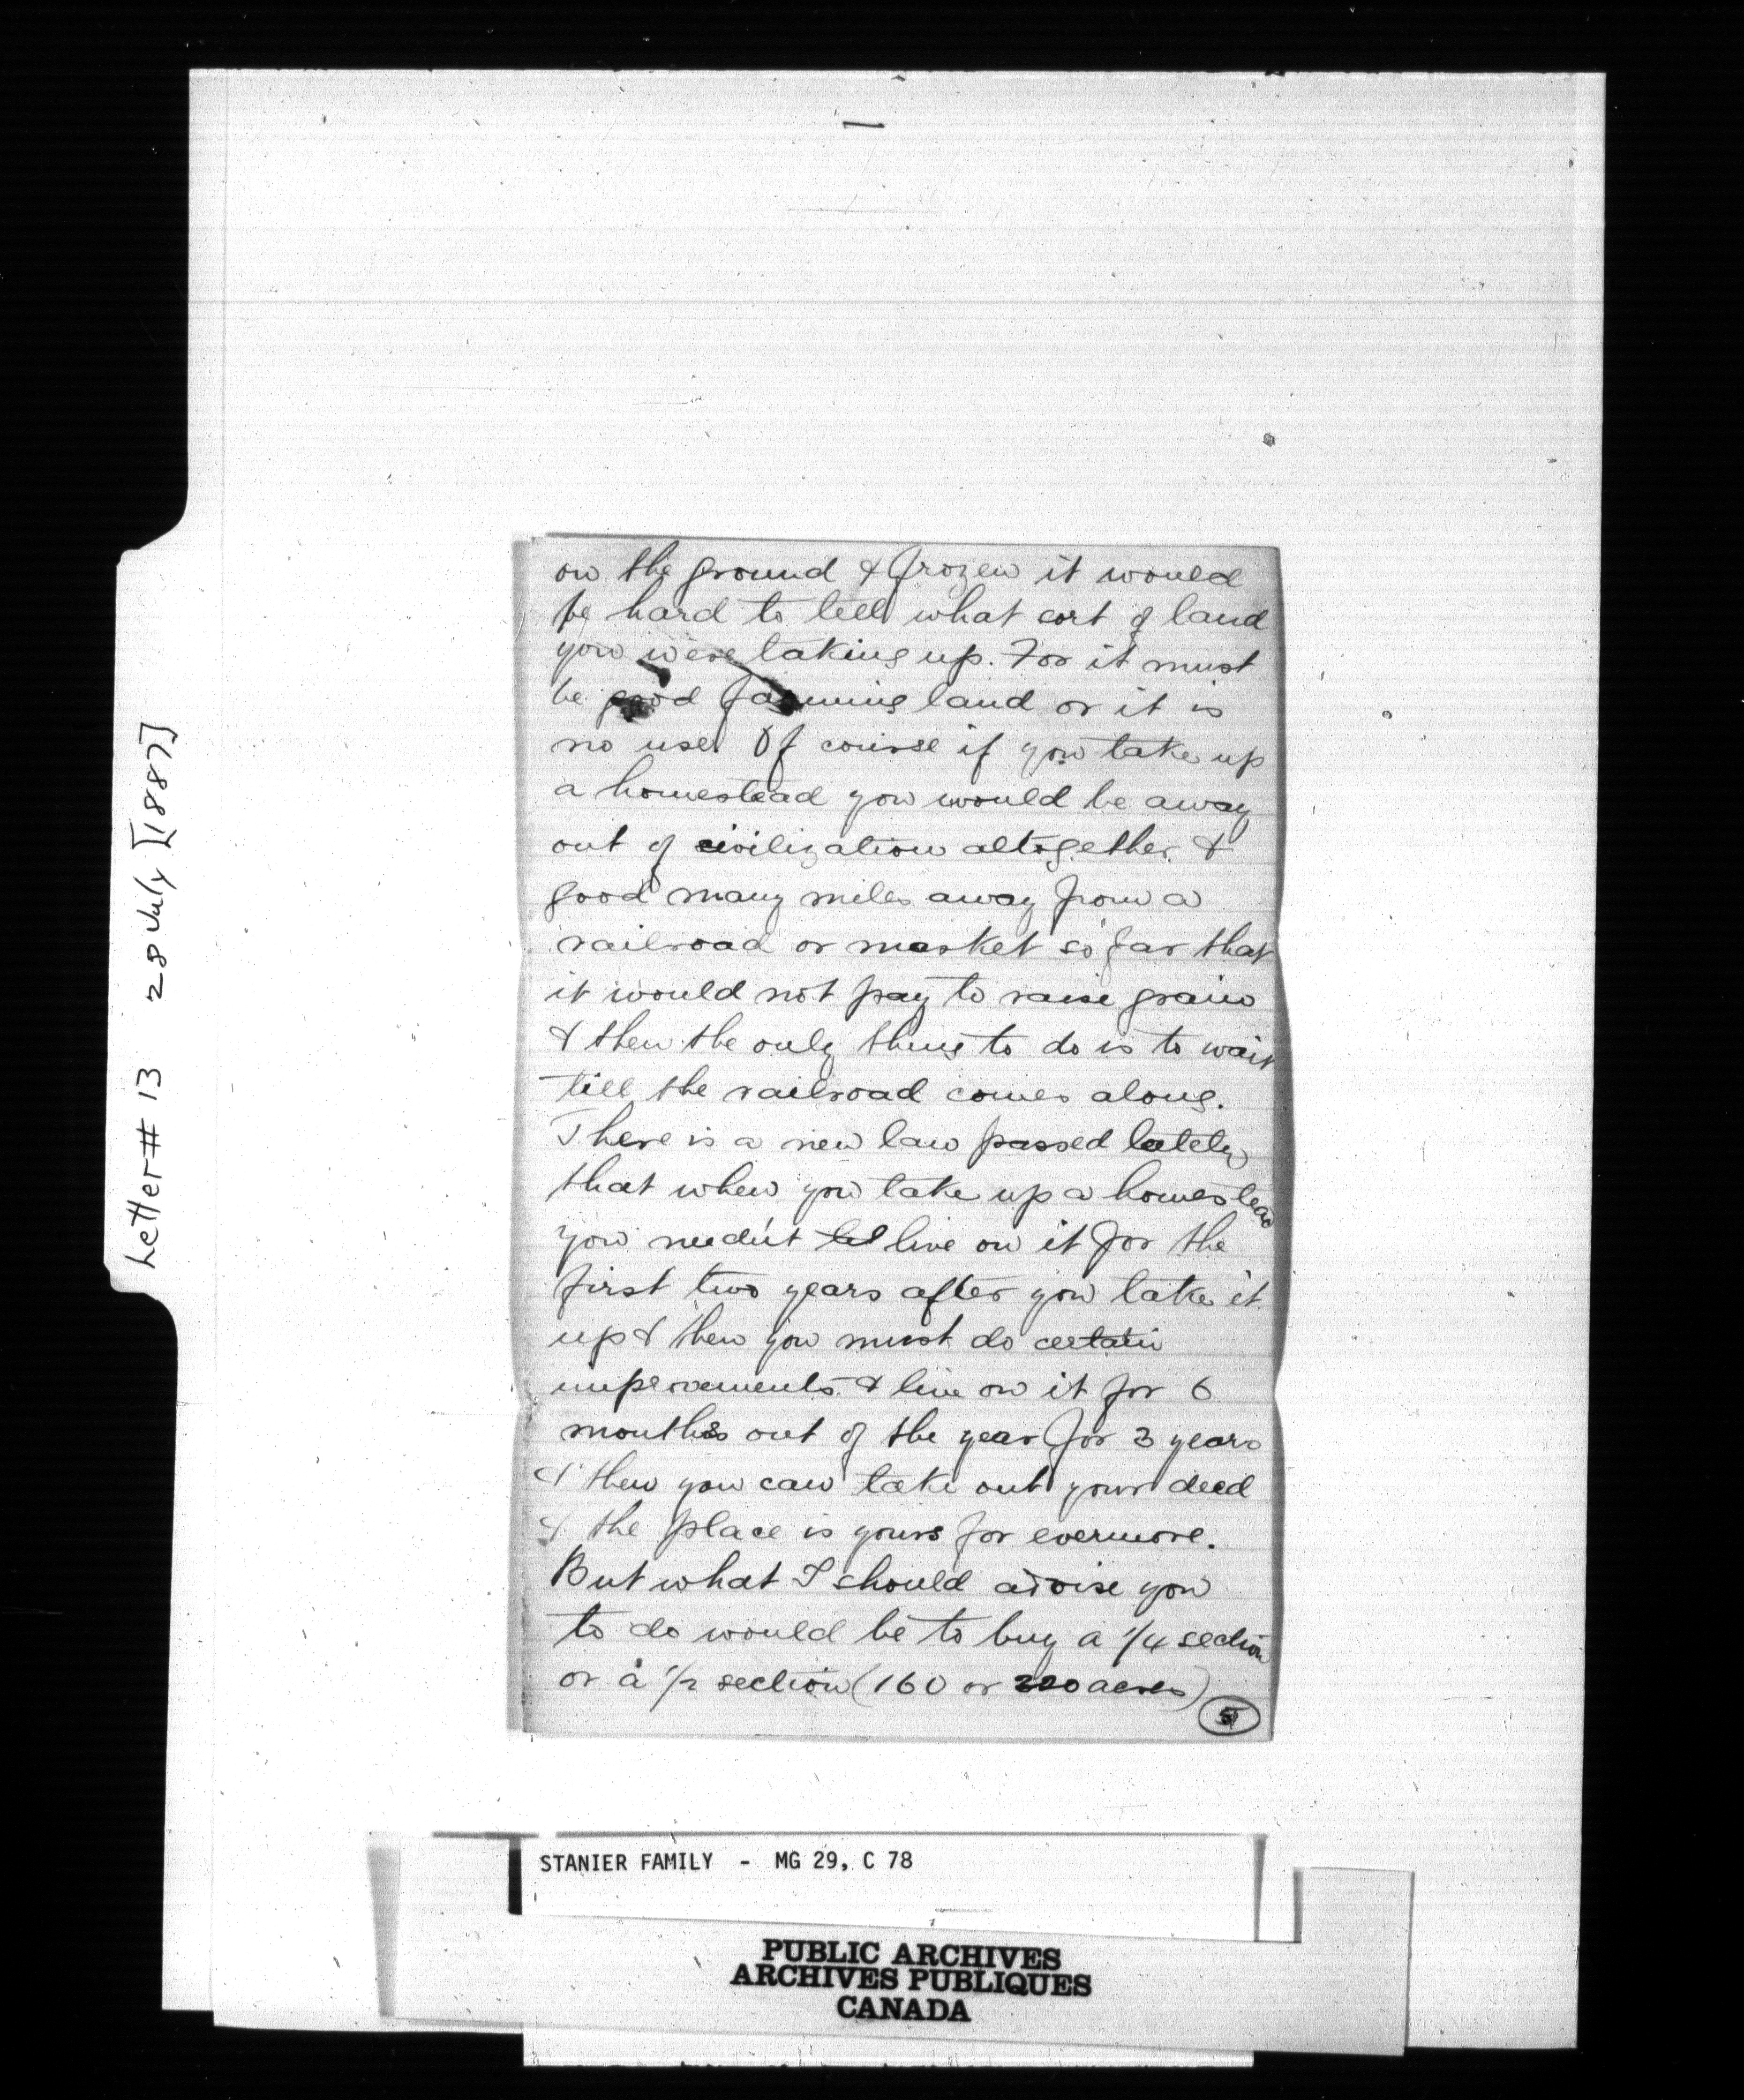 Letter # 13 28 July [1887]
on the ground & frozen it would
be hard to tell what sort of land
you were taking up. For it must
be good farming land or it is
no use. Of course if you take up
a homestead you would be away
out of civilization altogether &
good many miles away from a
railroad or market so far that
it would not pay to raise grain
& then the only thing to do is to wait
till the railroad comes along.
There is a new law passed lately
that when you take up a homestead
you needn't live on it for the
first two years after you take it
up & then you must do certain
improvements & live on it for 6
months out of the year for 3 years
& then you can take out your deed
& the place is yours for evermore.
But what I should advise you
to do would be to buy a 1/4 section
or a 1/2 section (160 or 320 acres)
5
STANIER FAMILY - MG 29, C 78
PUBLIC ARCHIVES
ARCHIVES PUBLIQUES
CANADA